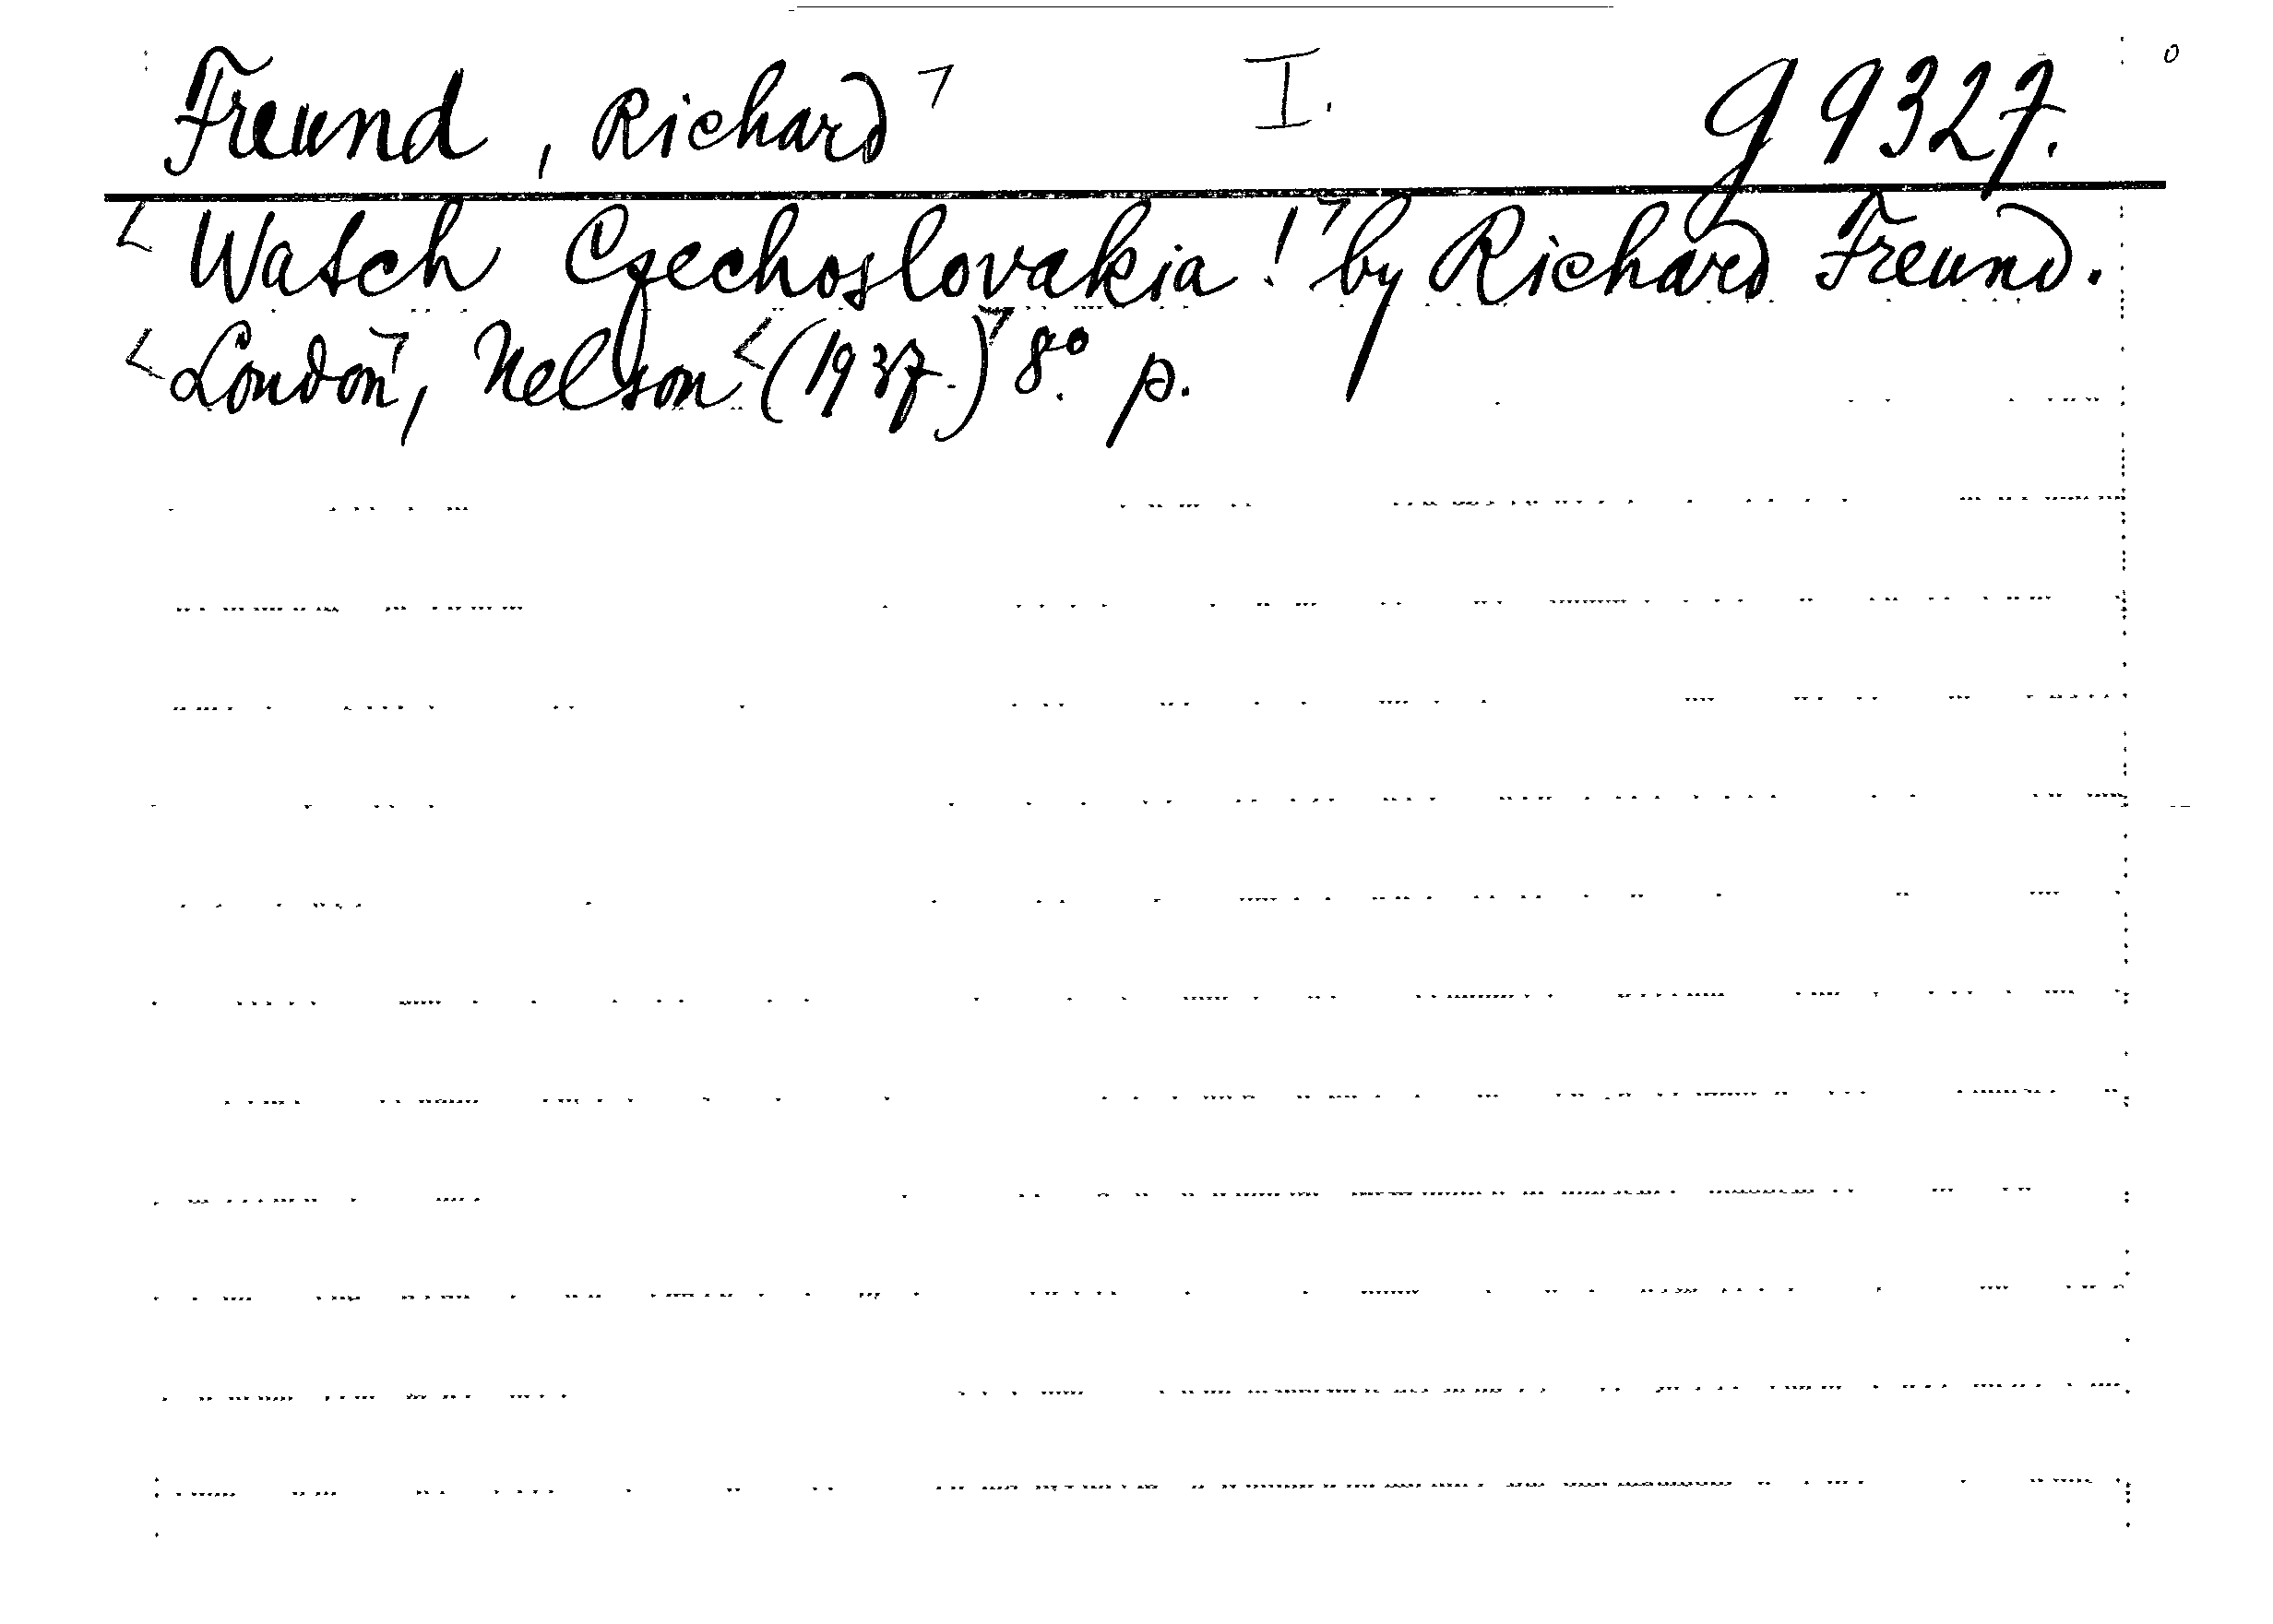 Freund, Richard I. g 9327.
Watsch Czechoslovakia! by Richard Freund.
London, Nelson (1937.) 8°. p.